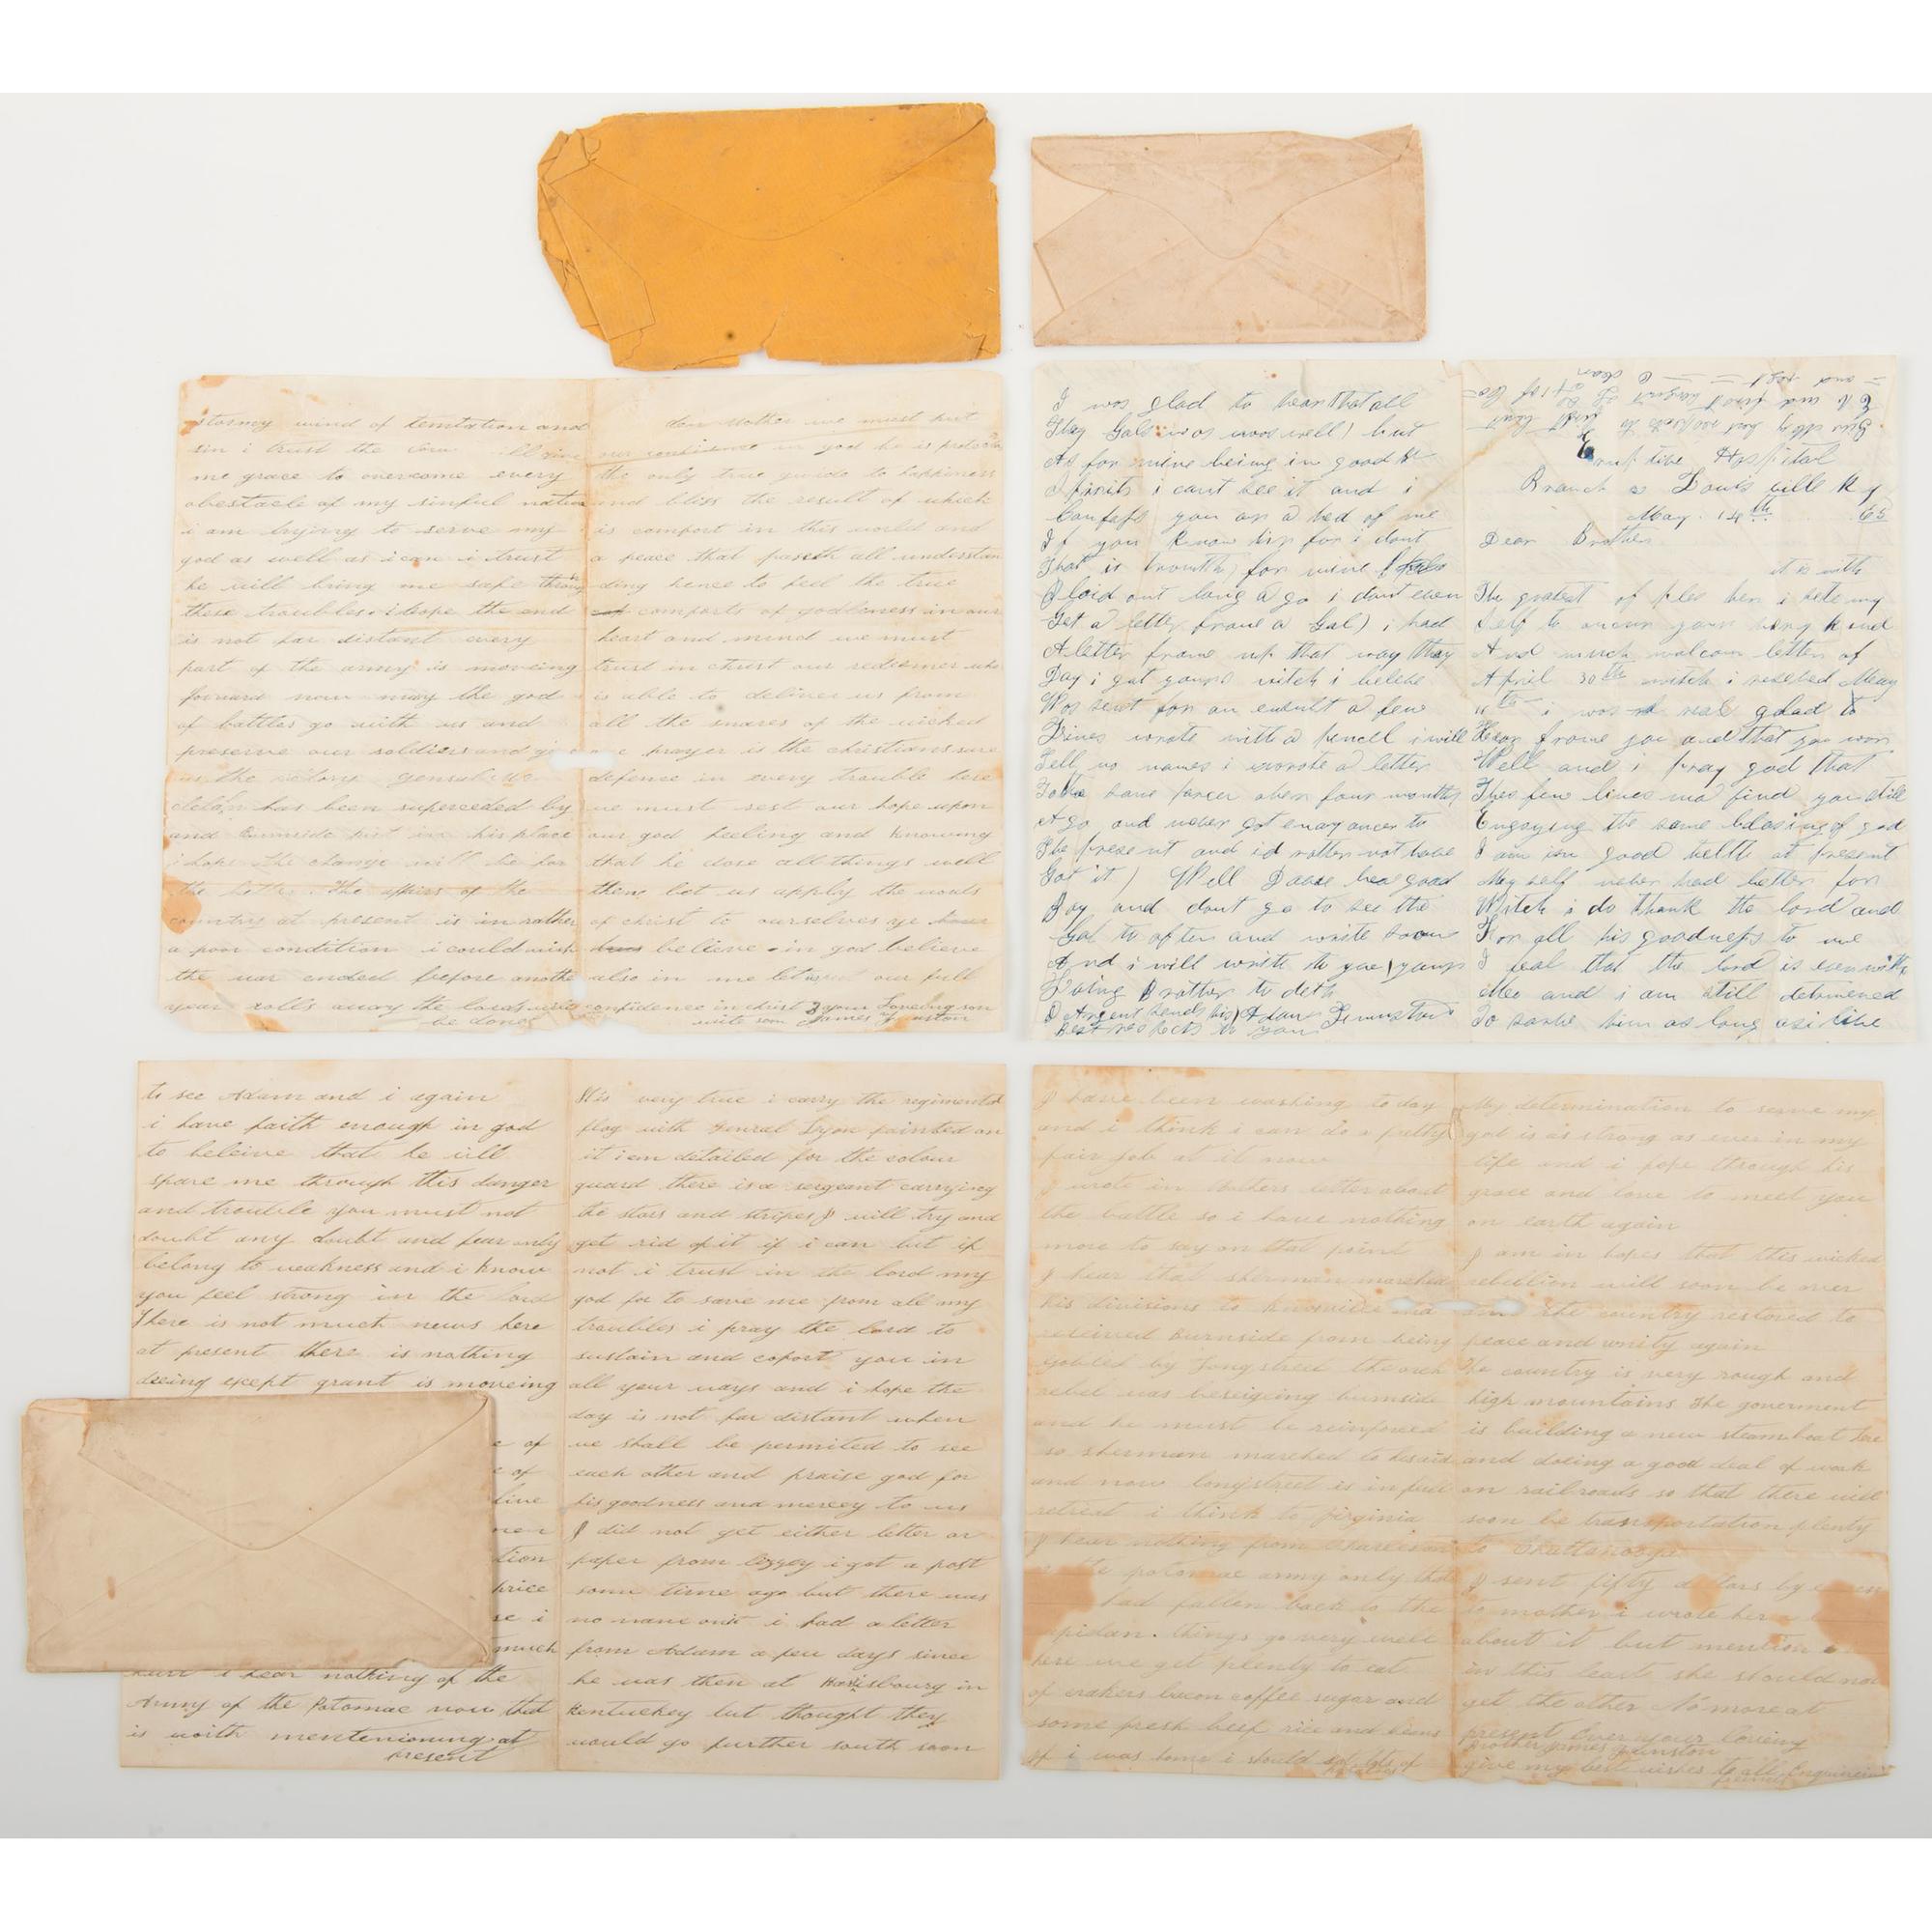 stormy wind of temtation and
sin i trust the will give
me grace to overcome every
obstacle of my sinful nation
i am trying to serve my
god as well as i can i trust
he will bring me safe through
these troubles i hope the end
is not far distant every
part of the army is moveing
forward now may the god
of battles go with us and
preserve our soldiers and
the
has been superceeded by
and Burnside put in his place
i hope the change will be for
the better The affairs of the
country at present is in rather
a poor condition i could wish
the war ended before anothe
year rolls away the lords will
be done
Dear Mother we must put
our confidence in god he is
the only true guide to happiness
and bliss the result of which
is comfort in this world and
a peace that paseth all understan
ding hence to feel the true
comforts of godliness in our
heart and mind we must
trust in christ our redeemer who
is able to deliver us from
all the snares of the wicked
one prayer is the christians sure
defence in every trouble here
we must rest our hope upon
our god feeling and knowing
that he dose all things well
then let us apply the words
of christ to ourselves ye
believe in god believe
also in me let us put our full
confidence in christ your loveing son
write soon James Junston
I was glad to hear that all
Thay Gals was was well) but
As for mine being in good
Spirits i cant see it and i
Confess you are a hed of me
If you know his for i dont
That is
Plaid out long a go i dont even
Get a letter frome a Gal) i had
A letter frome up that way thay
Day i got yours witch i beleve
Was sent for an a few
Lines wrote with a pencell i will
Tell no names i wrote a letter
To four months
Ago and never got eney ancer to
The present and id rather not have
Got it) Well Dave be a good
Boy and dont go to see the
Gal to often and write soon
And i will write to you) yours
Loving Brother to deth
D Argent sends his Adam Junnston
Best respects to you
Eruptive Hospital
Branch a Louis ville Ky
May 14th 65
Dear Brother
it is with
The gratest of i sete my
Self to ancer your very kind
And much walcom letter of
April 30th witch i receved May
i was real glad to
Hear frome you and that you wors
Well and i pray god that
Thes few lines ma find you still
Engoying the same blesing of god
I am in good helth at present
My self never had better for
Witch i do thank the lord and
For all his goodness to me
I feal that the lord is even with
Mee and i am still detirmened
To sarve him as long as i live
to see Adam and i again
i have faith enough in god
to beleive that he will
spare me through this danger
and trouble you must not
doubt any doubt and fear only
belong to weakness and i know
you feel strong in the lord
There is not much news here
at present there is nothing
doeing exept grant is moveing
e of
e of
line
men
tion
price
se i
much
hurt i hear nothing of the
Army of the Potomac now that
is worth mentenioning at
present
It is very true i carry the regimental
flag with Genral Lyon painted on
it i em detailed for the colour
guard there is a sergeant carrying
the stars and stripes I will try and
get rid of it if i can but if
not i trust in the lord my
god for to save me from all my
troubles i pray the lord to
sustain and cofort you in
all your ways and i hope the
day is not far distant when
we shall be permited to see
each other and praise god for
his goodness and mercey to us
I did not get either letter or
paper from lizzey i got a post
some time ago but there was
no name onit i had a letter
from Adam a few days since
he was then at Harisbourg in
Kentuckey but thought they
would go further south soon
I have been washing to day
and i think i can do a pretty
fair job at it now
I wrote in Mothers letter about
the battle so i have nothing
more to say on that point
I hear that sherman marched
his divisions to knoxville and
releived Burnside from being
gobled by Longstreet the arch
rebel was beseigeing burnside
and he must be reinforced
so sherman marched to his aid
and now longstreet is in full
retreat i think to Virginia
I hear nothing from Charleston
the potomac army only that
had fallen back to the
rapidan. things go very well
here we get plenty to eat
of crakers bacon coffee sugar and
some fresh beef rice and beans
if i was home i should eat lots of
My determination to serve my
god is as strong as ever in my
life and i hope through his
grace and love to meet you
on earth again
I am in hopes that this wicked
rebellion will soon be over
and the country restored to
peace and unity again
The country is very rough and
high mountains The goverment
is building a new steamboat here
and doeing a good deal of work
on railroads so that there will
soon be transportation plenty
to Chattanooga
I sent fifty dollars by
to mother i wrote her
about it but mention
in this least she should not
get the other No more at
present Ever your loveing
brother James Junston
give my best wishes to all Enquireing
friends